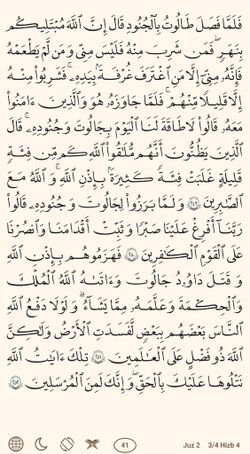 فَلَمَّا فَصَلَ طَالُوتُ بِٱلْجُنُودِ قَالَ إِنَّ ٱللَّهَ مُبْتَلِيكُم
بِنَهَرٍ فَمَن شَرِبَ مِنْهُ فَلَيْسَ مِنِّى وَمَن لَّمْ يَطْعَمْهُ
فَإِنَّهُۥ مِنِّىٓ إِلَّا مَنِ ٱغْتَرَفَ غُرْفَةًۢ بِيَدِهِۦ ۚ فَشَرِبُوا۟ مِنْهُ
إِلَّا قَلِيلًا مِّنْهُمْ ۚ فَلَمَّا جَاوَزَهُۥ هُوَ وَٱلَّذِينَ ءَامَنُوا۟
مَعَهُۥ قَالُوا۟ لَا طَاقَةَ لَنَا ٱلْيَوْمَ بِجَالُوتَ وَجُنُودِهِۦ ۚ قَالَ
ٱلَّذِينَ يَظُنُّونَ أَنَّهُم مُّلَٰقُوا۟ ٱللَّهِ كَم مِّن فِئَةٍ
قَلِيلَةٍ غَلَبَتْ فِئَةً كَثِيرَةًۢ بِإِذْنِ ٱللَّهِ ۗ وَٱللَّهُ مَعَ
ٱلصَّٰبِرِينَ ٢٤٩ وَلَمَّا بَرَزُوا۟ لِجَالُوتَ وَجُنُودِهِۦ قَالُوا۟
رَبَّنَآ أَفْرِغْ عَلَيْنَا صَبْرًا وَثَبِّتْ أَقْدَامَنَا وَٱنصُرْنَا
عَلَى ٱلْقَوْمِ ٱلْكَٰفِرِينَ ٢٥٠ فَهَزَمُوهُم بِإِذْنِ ٱللَّهِ
وَقَتَلَ دَاوُۥدُ جَالُوتَ وَءَاتَىٰهُ ٱللَّهُ ٱلْمُلْكَ
وَٱلْحِكْمَةَ وَعَلَّمَهُۥ مِمَّا يَشَآءُ ۗ وَلَوْلَا دَفْعُ ٱللَّهِ
ٱلنَّاسَ بَعْضَهُم بِبَعْضٍ لَّفَسَدَتِ ٱلْأَرْضُ وَلَٰكِنَّ
ٱللَّهَ ذُو فَضْلٍ عَلَى ٱلْعَٰلَمِينَ ٢٥١ تِلْكَ ءَايَٰتُ ٱللَّهِ
نَتْلُوهَا عَلَيْكَ بِٱلْحَقِّ ۚ وَإِنَّكَ لَمِنَ ٱلْمُرْسَلِينَ ٢٥٢
41 Juz 2 3/4 Hizb 4